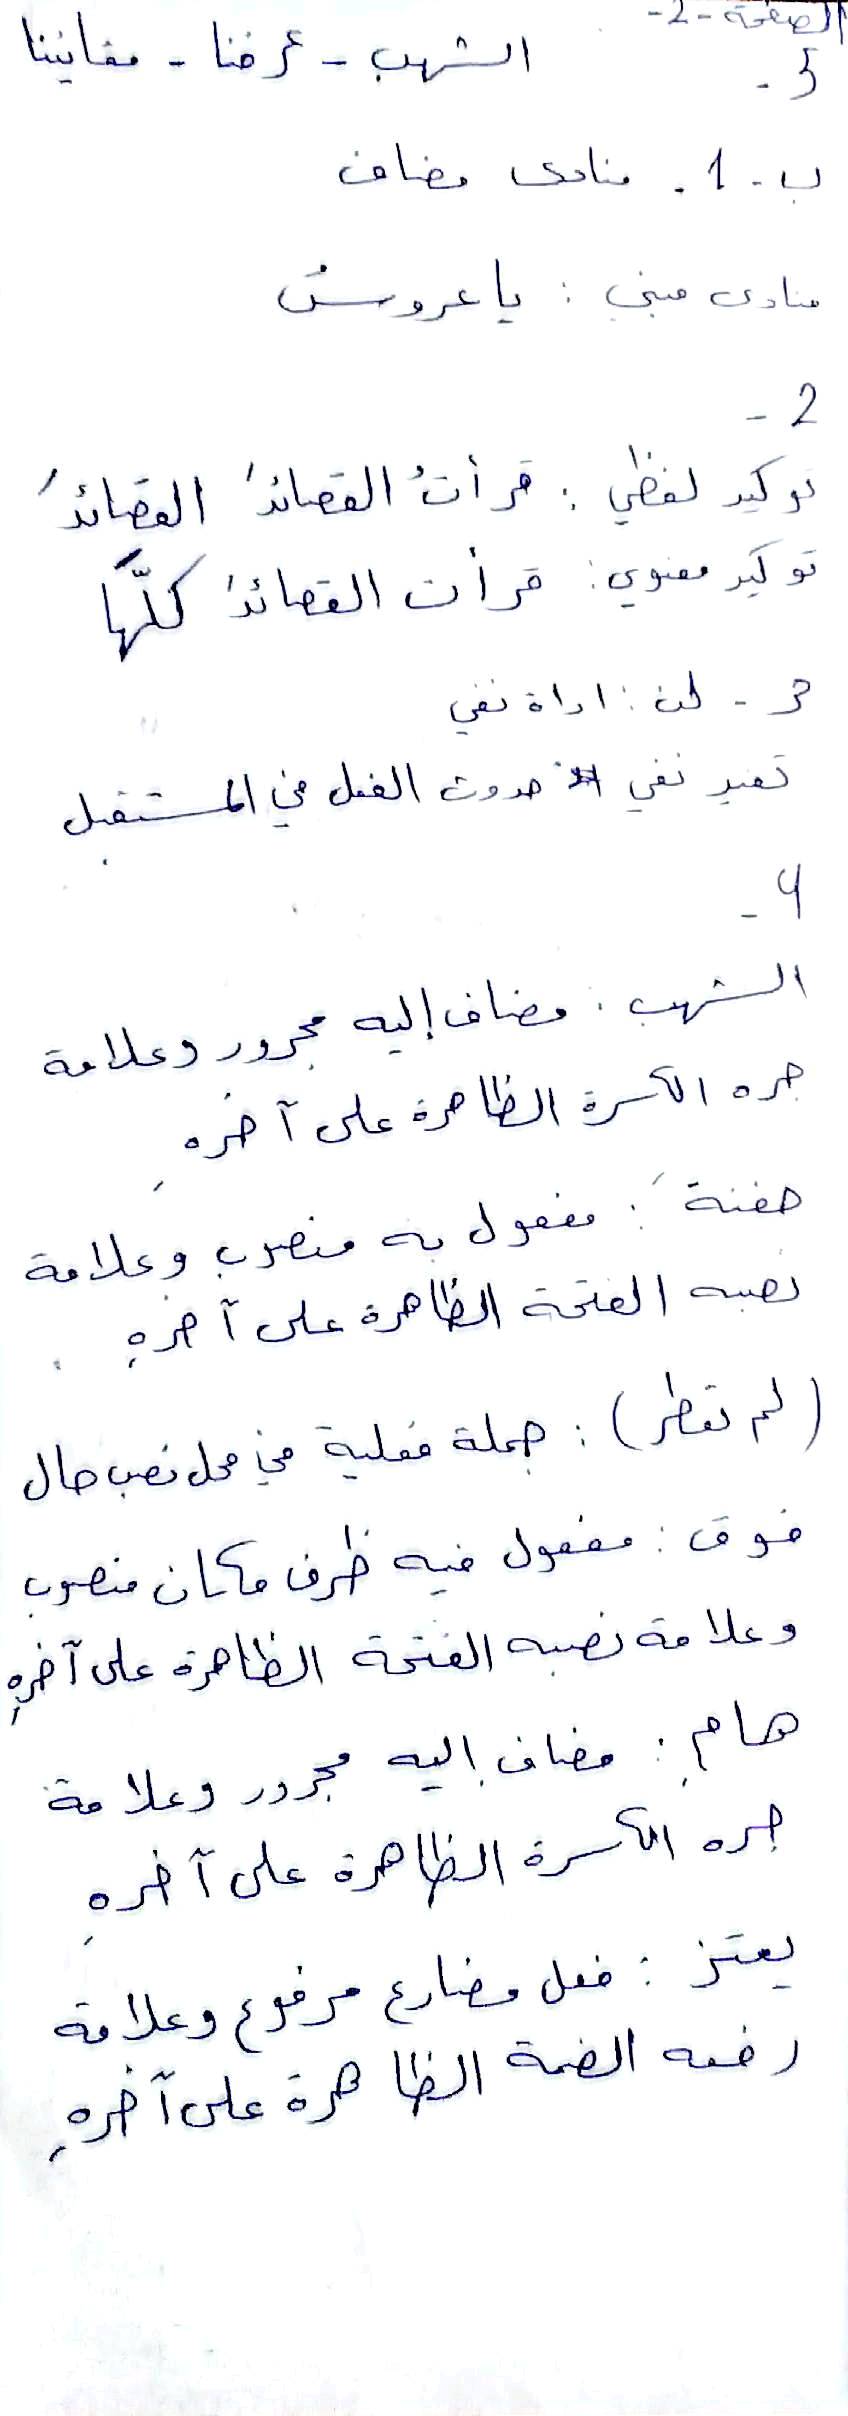 الصفحة -2-
5- الشهب - عرفنا - مغانينا
ب - 1 . منادى مضاف
منادى مبني : يا عروسُ
2 -
توكيد لفظي : قرأتُ القصائدَ القصائدَ
توكيد معنوي : قرأت القصائدَ كلَّها
3 - لن : اداة نفي
تفيد نفي حدوث الفعل في المستقبل
4 -
الشهب : مضاف إليه مجرور وعلامة
جره الكسرة الظاهرة على آخره
حفنةَ : مفعول به منصوب وعلامة
نصبه الفتحة الظاهرة على آخرهِ
(لم تقطر) : جملة فعلية في محل نصب حال
فوق : مفعول فيه ظرف مكان منصوب
وعلامة نصبه الفتحة الظاهرة على آخرهِ
هامِ : مضاف إليه مجرور وعلامة
جره الكسرة الظاهرة على آخرهِ
يعتز : فعل مضارع مرفوع وعلامة
رفعه الضمة الظاهرة على آخرهِ